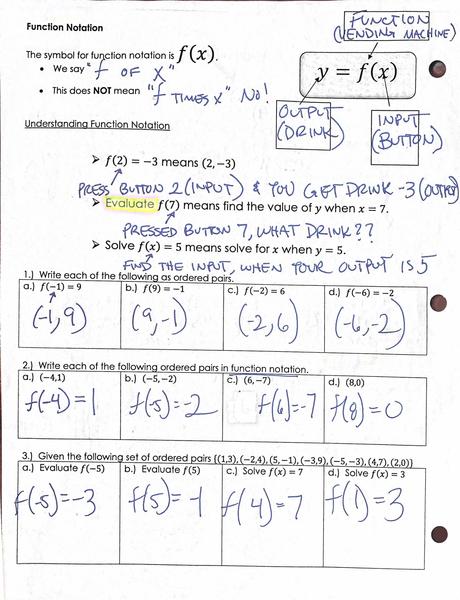 Function Notation
FUNCTION
(VENDING MACHINE)
The symbol for function notation is f(x).
• We say "f OF X"
• This does NOT mean "f TIMES X" NO!
y = f(x)
OUTPUT
(DRINK)
INPUT
(BUTTON)
Understanding Function Notation
➢ f(2) = −3 means (2,−3)
PRESS BUTTON 2 (INPUT) & YOU GET DRINK -3 (OUTPUT)
➢ Evaluate f(7) means find the value of y when x = 7.
PRESSED BUTTON 7, WHAT DRINK??
➢ Solve f(x) = 5 means solve for x when y = 5.
FIND THE INPUT, WHEN YOUR OUTPUT IS 5
1.) Write each of the following as ordered pairs.
a.) f(−1) = 9 b.) f(9) = −1 c.) f(−2) = 6 d.) f(−6) = −2
(-1,9) (9,-1) (-2,6) (-6,-2)
2.) Write each of the following ordered pairs in function notation.
a.) (−4,1) b.) (−5,−2) c.) (6,−7) d.) (8,0)
f(-4)=1 f(-5)=-2 f(6)=-7 f(8)=0
3.) Given the following set of ordered pairs {(1,3),(−2,4),(5,−1),(−3,9),(−5,−3),(4,7),(2,0)}
a.) Evaluate f(−5) b.) Evaluate f(5) c.) Solve f(x) = 7 d.) Solve f(x) = 3
f(-5)=-3 f(5)=-1 f(4)=7 f(1)=3